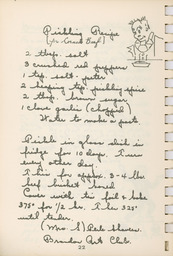 Pickling Recipe
(for Corned Beef)
2 tbsp. salt
3 crushed red peppers
1 tsp salt-peter
2 heaping tsp pickling spice
2 tbsp. brown sugar
1 clove garlic (chopped)
Water to make a paste
Pickle in glass dish in
fridge for 10 days. Turn
every other day.
This for approx 3-4 lbs
beef brisket boned
Cover with tin foil & bake
375° for 1/2 hr. Then 325°
until tender.
(Mrs. S)
Brandon Art Club.
22